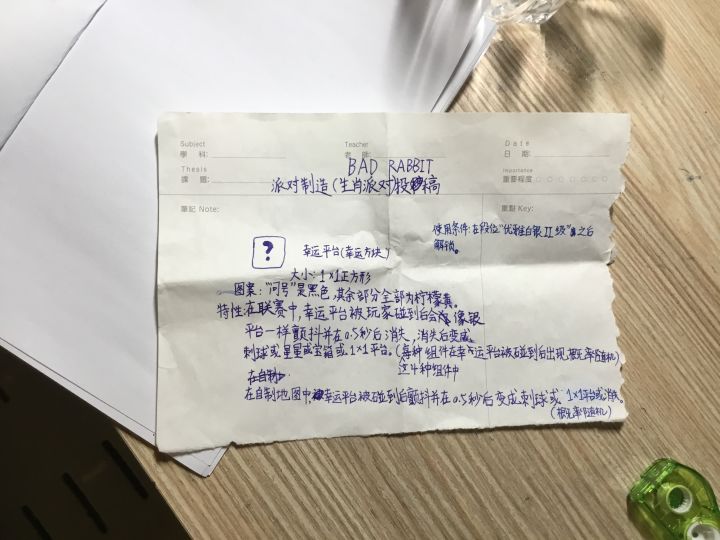 Subject
學 科:
Teacher
老 師:
Date
日 期:
Thesis
課 題:
Importance
重要程度
BAD RABBIT
派对制造(生肖派对)投稿
筆記 Note:
重點 Key:
使用条件:在段位“优雅白银II级”之后
解锁。
?
幸运平台(幸运方块)
大小:1×1正方形
图案:“问号”是黑色,其余部分全部为柠檬黄。
特性:在联赛中,幸运平台被玩家碰到后会像银
平台一样颤抖并在0.5秒后消失,消失后变成
刺球或星星或宝箱或1×1平台。(每种组件在幸运平台被碰到后出现,概率随机)
这4种组件中
在自制
在自制地图中,幸运平台被碰到后颤抖并在0.5秒后变成刺球或1×1平台或消失。
(概率随机)